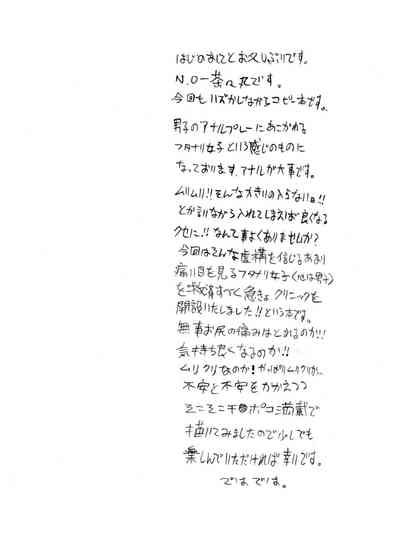 はじめましてとお久しぶりです。
N.O一茶ん丸です。
今回もハズかしながらコピー本です。
男子のアナルプレーにあこがれる
フタナリ女子という感じのものに
なっております。アナルが大事です。
ムリムリ!!そんな大きいの入らない!!
とか言いながら入れてしまえば良くなる
クセに!!なんて事よくありませんか?
今回はそんな虚構を信じるあまり
痛い目を見るフタナリ女子(他は男子)
を救済すべく急きょクリニックを
開設いたしました!!という本です。
無事お尻の痛みはとれるのか!!
気持ち良くなるのか!!
ムリクリなのか!
不安と不安をかかえつつ
そこそこチ●ポコ満載で
描いてみましたので少しでも
楽しんでいただければ幸いです。
ではでは。